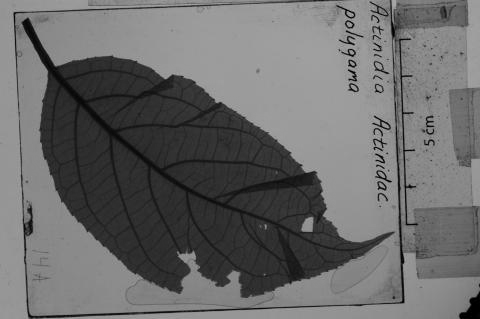 Actinidia Actinidac.
polygama
5 cm
14A